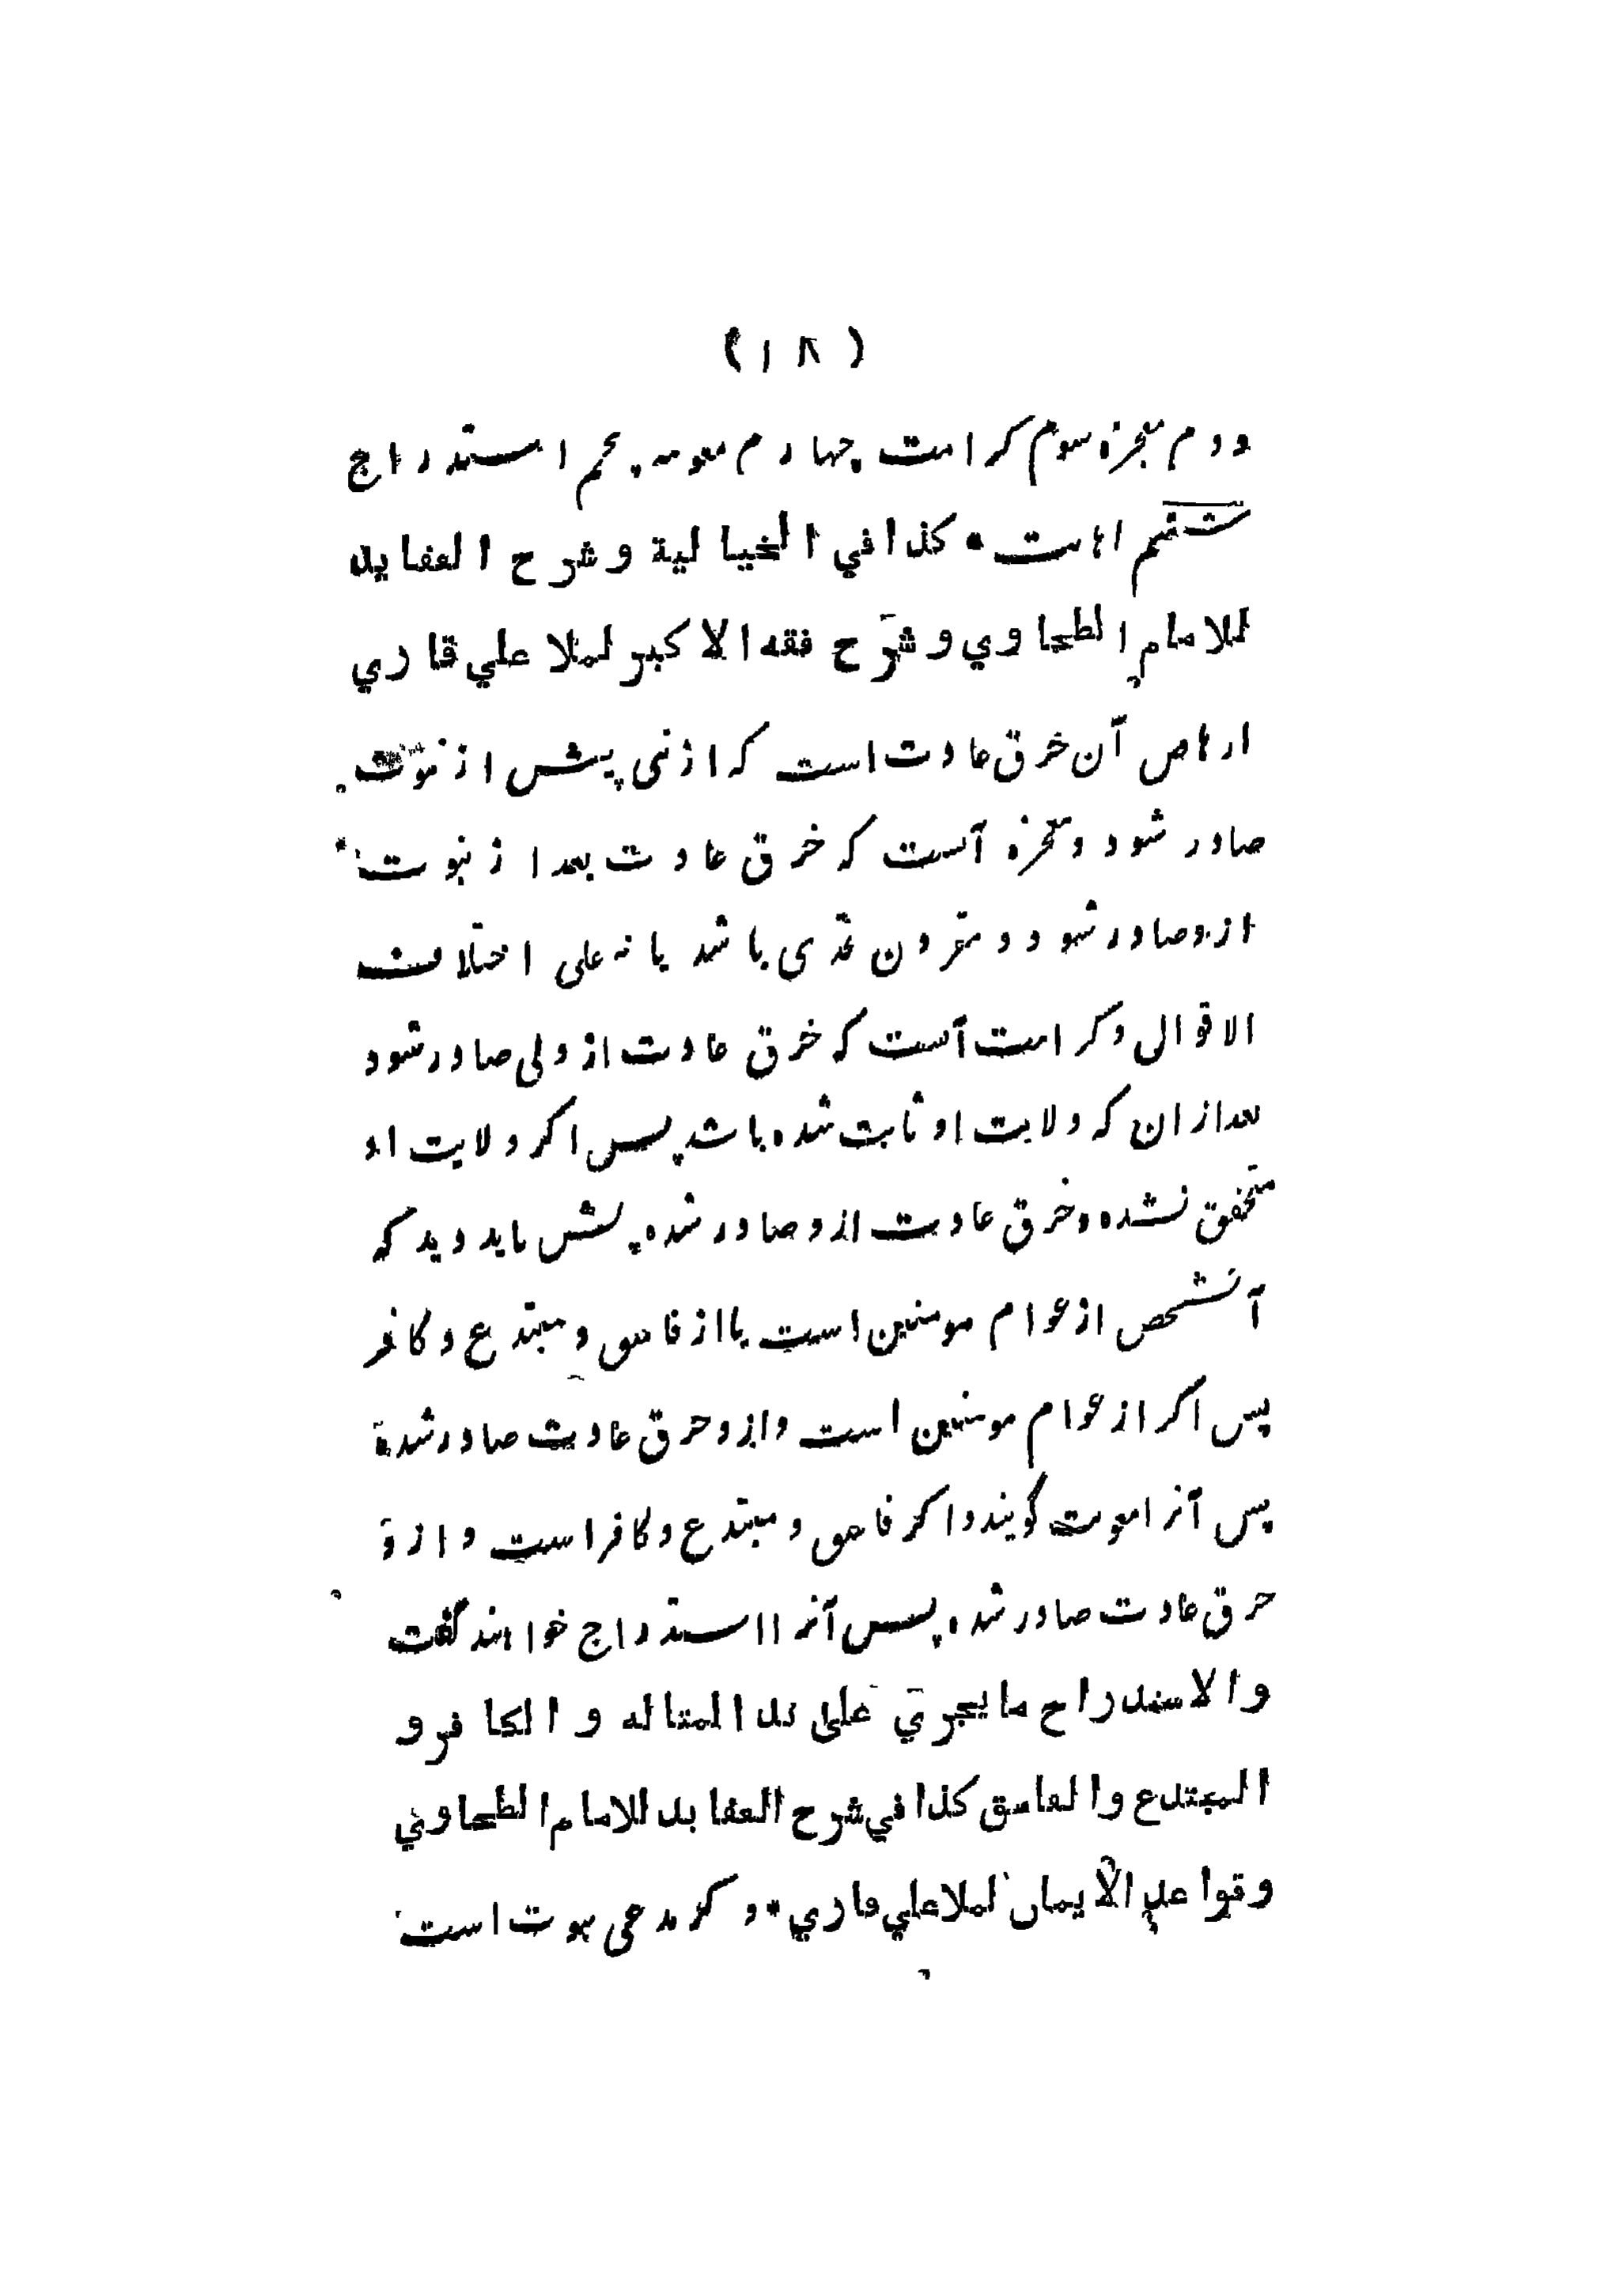 (١٨)
دوم معجزه سوم کرامت چهارم معونت پنجم استدراج
ششم اهانت * کذا في الخيالية و شرح العقايد
للامام الطحاوي و شرح فقه الاکبر لملا علي قاري
ارهاص آن خرق عادت است که از نبی پیش از نبوت
صادر شود و معجزه آنست که خرق عادت بعد از نبوت
ازو صادر شود و مقرون تحدی باشد یا نه علی اختلاف
الاقوال و کرامت آنست که خرق عادت از ولی صادر شود
بعد ازان که ولایت او ثابت شده باشد پس اگر ولایت او
متحقق نشده و خرق عادت ازو صادر شده پسش باید دید که
آنشخص از عوام مومنین است یا از فاسق و مبتدع و کافر
پس اگر از عوام مومنین است و ازو خرق عادت صادر شده
پس آنرا معونت گویند و اگر فاسق و مبتدع و کافر است و ازو
خرق عادت صادر شده پس آنرا استدراج خواهند گفت
و الاستدراج ما يجري على يد المتاله و الکافر و
المبتدع و الفاسق کذا في شرح العقايد للامام الطحاوي
و قواعد الايمان لملا علي قاري * و گر مدعی نبوت است